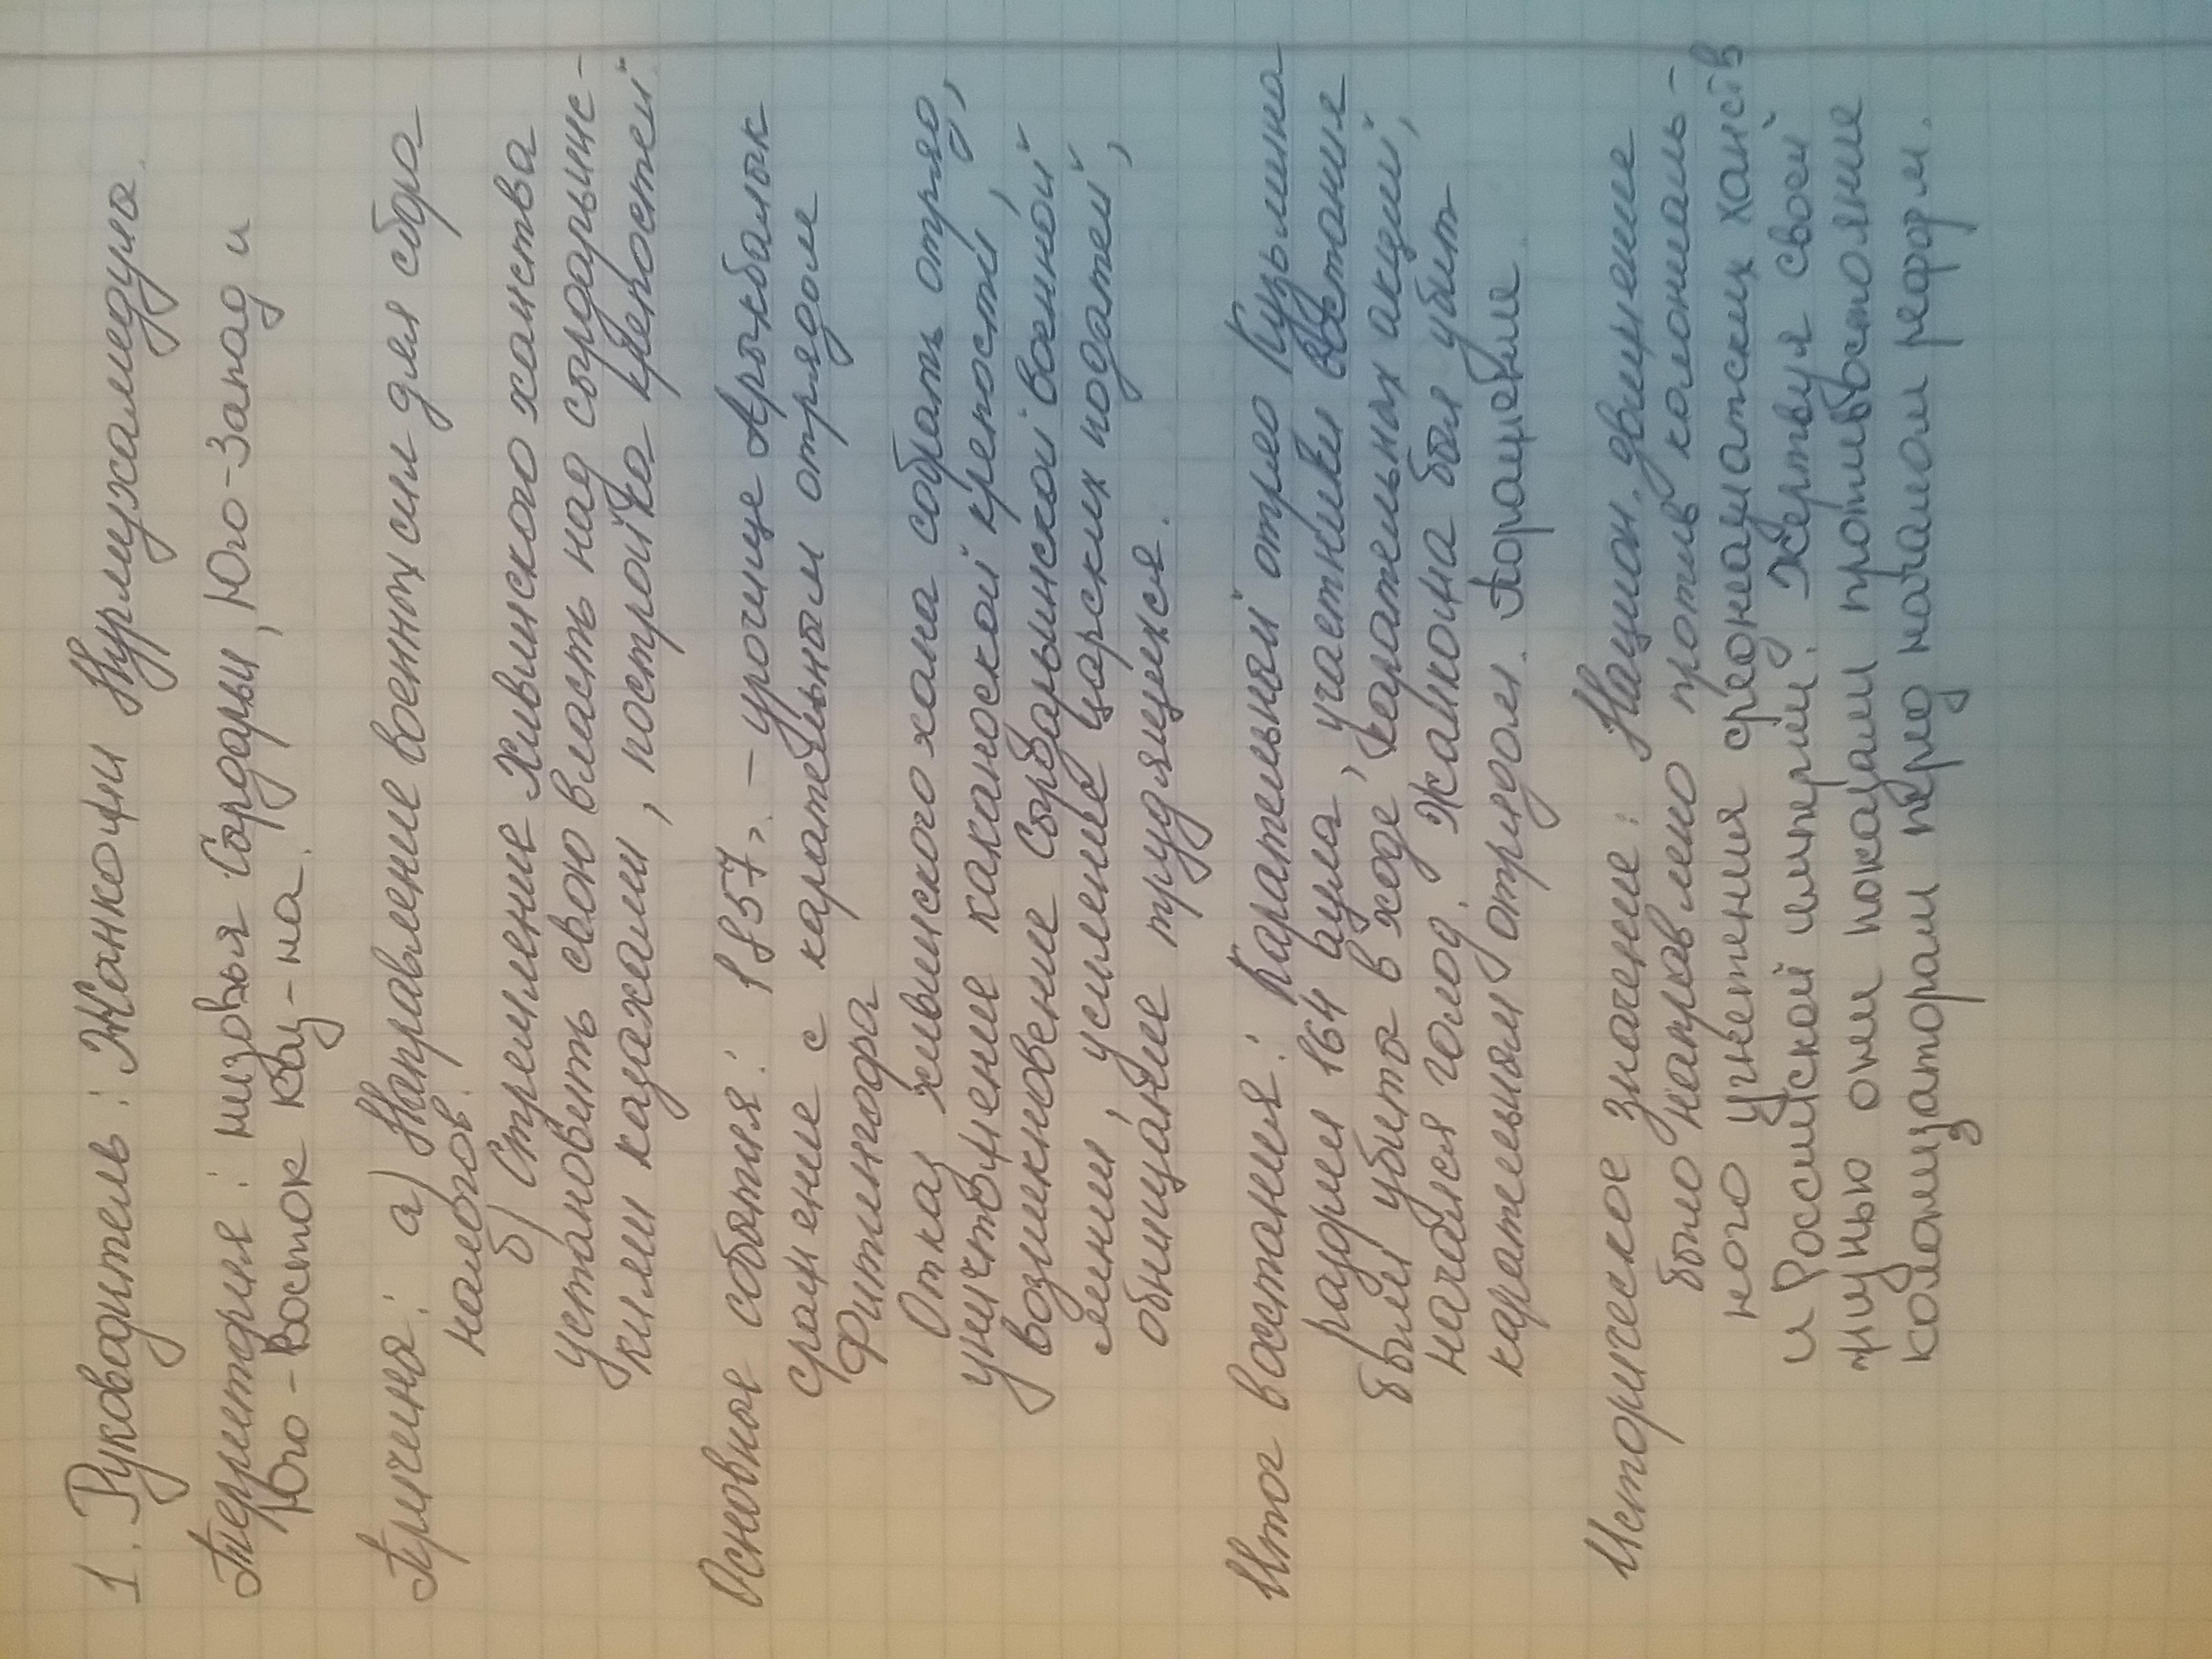 1. Руководитель: Жанкожи Нурмухамедулы.
Территория: низовья Сырдарьи, Юго-Запад и
Юго-Восток каз-на.
Причины: а) Направление военных сил для сбора
налогов.
б) Стремление Хивинского ханства
установить свою власть над сырдарьинс-
кими казахами, постройка крепостей
Основные события: 1857г. – урочище Арыкбалык
сражение с карательным отрядом
Фитингофа
Отказ хивинского хана собрать отряд,
уничтожение какандской крепости,
возникновение Сырдарьинской военной
линии, усиление царских податей,
обнищание трудящихся.
Итог восстания: Карательный отряд Кузьмина
разорил 164 аула, участники востания
были убиты в ходе карательных акций,
начался голод. Жанкожа был убит
карательным отрядом. Поражение.
Историческое значение: Национ. движение
было направлено против колониаль-
ного угнетения среднеазиатских ханств
и Российской империи. Жертвуя своей
жизнью они показали противостояние
колонизаторам перед началом реформ.